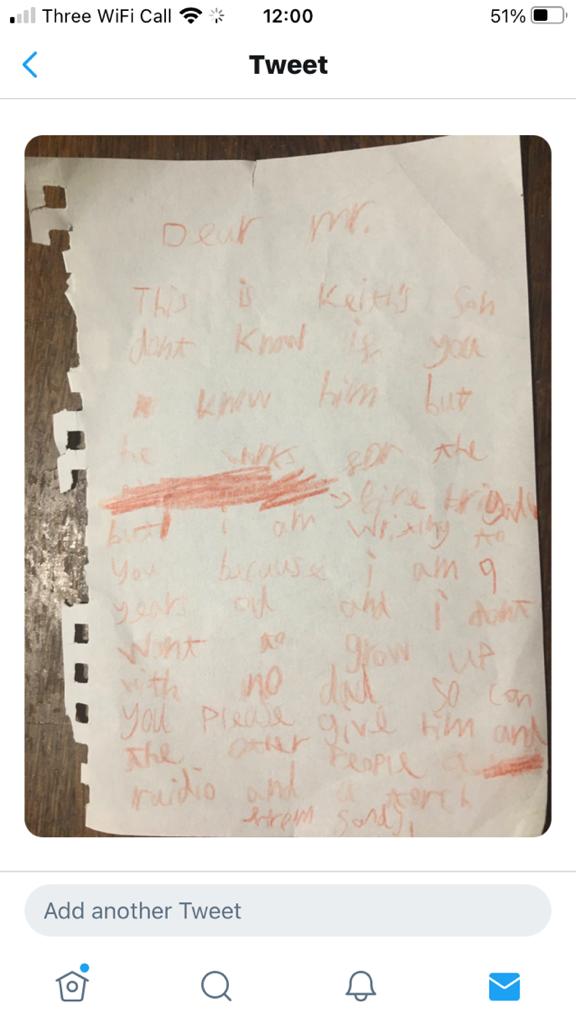 Three WiFi Call 12:00 51%
Tweet
Dear Mr.
This is Keith's Son
dont know if you
know him but
he works for the
fire brigade
but i am writing to
you because i am 9
years old and i dont
want to grow up
with no dad so can
you please give him and
the other people a
raidio and a torch
from Sandy,
Add another Tweet